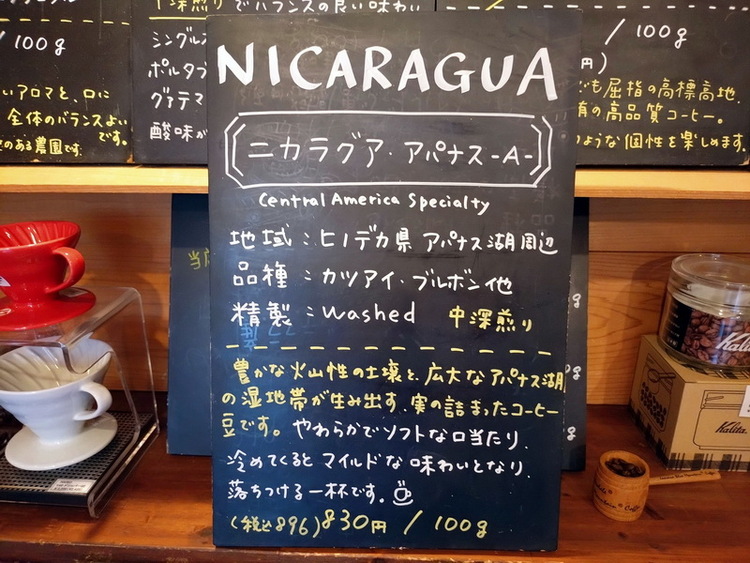 中深煎りでバランスの良い味わい
/100g
/100g
シングル
ポルタブ
グァテマ
酸味が
いアロマと、口に
全体のバランスよい
です。
のある農園です。
でも屈指の高標高地.
有の高品質コーヒー。
のような個性を楽しめます.
NICARAGUA
ニカラグア・アパナス-A-
Central America Specialty
地域:ヒノデカ県 アパナス湖周辺
品種:カツアイ・ブルボン他
精製:washed 中深煎り
豊かな火山性の土壌と、広大なアパナス湖
の湿地帯が生み出す、実の詰まったコーヒー
豆です。やわらかでソフトな口当たり.
冷めてくるとマイルドな味わいとなり.
落ちつける一杯です。
(税込896)830円/100g
Kalita
Kalita